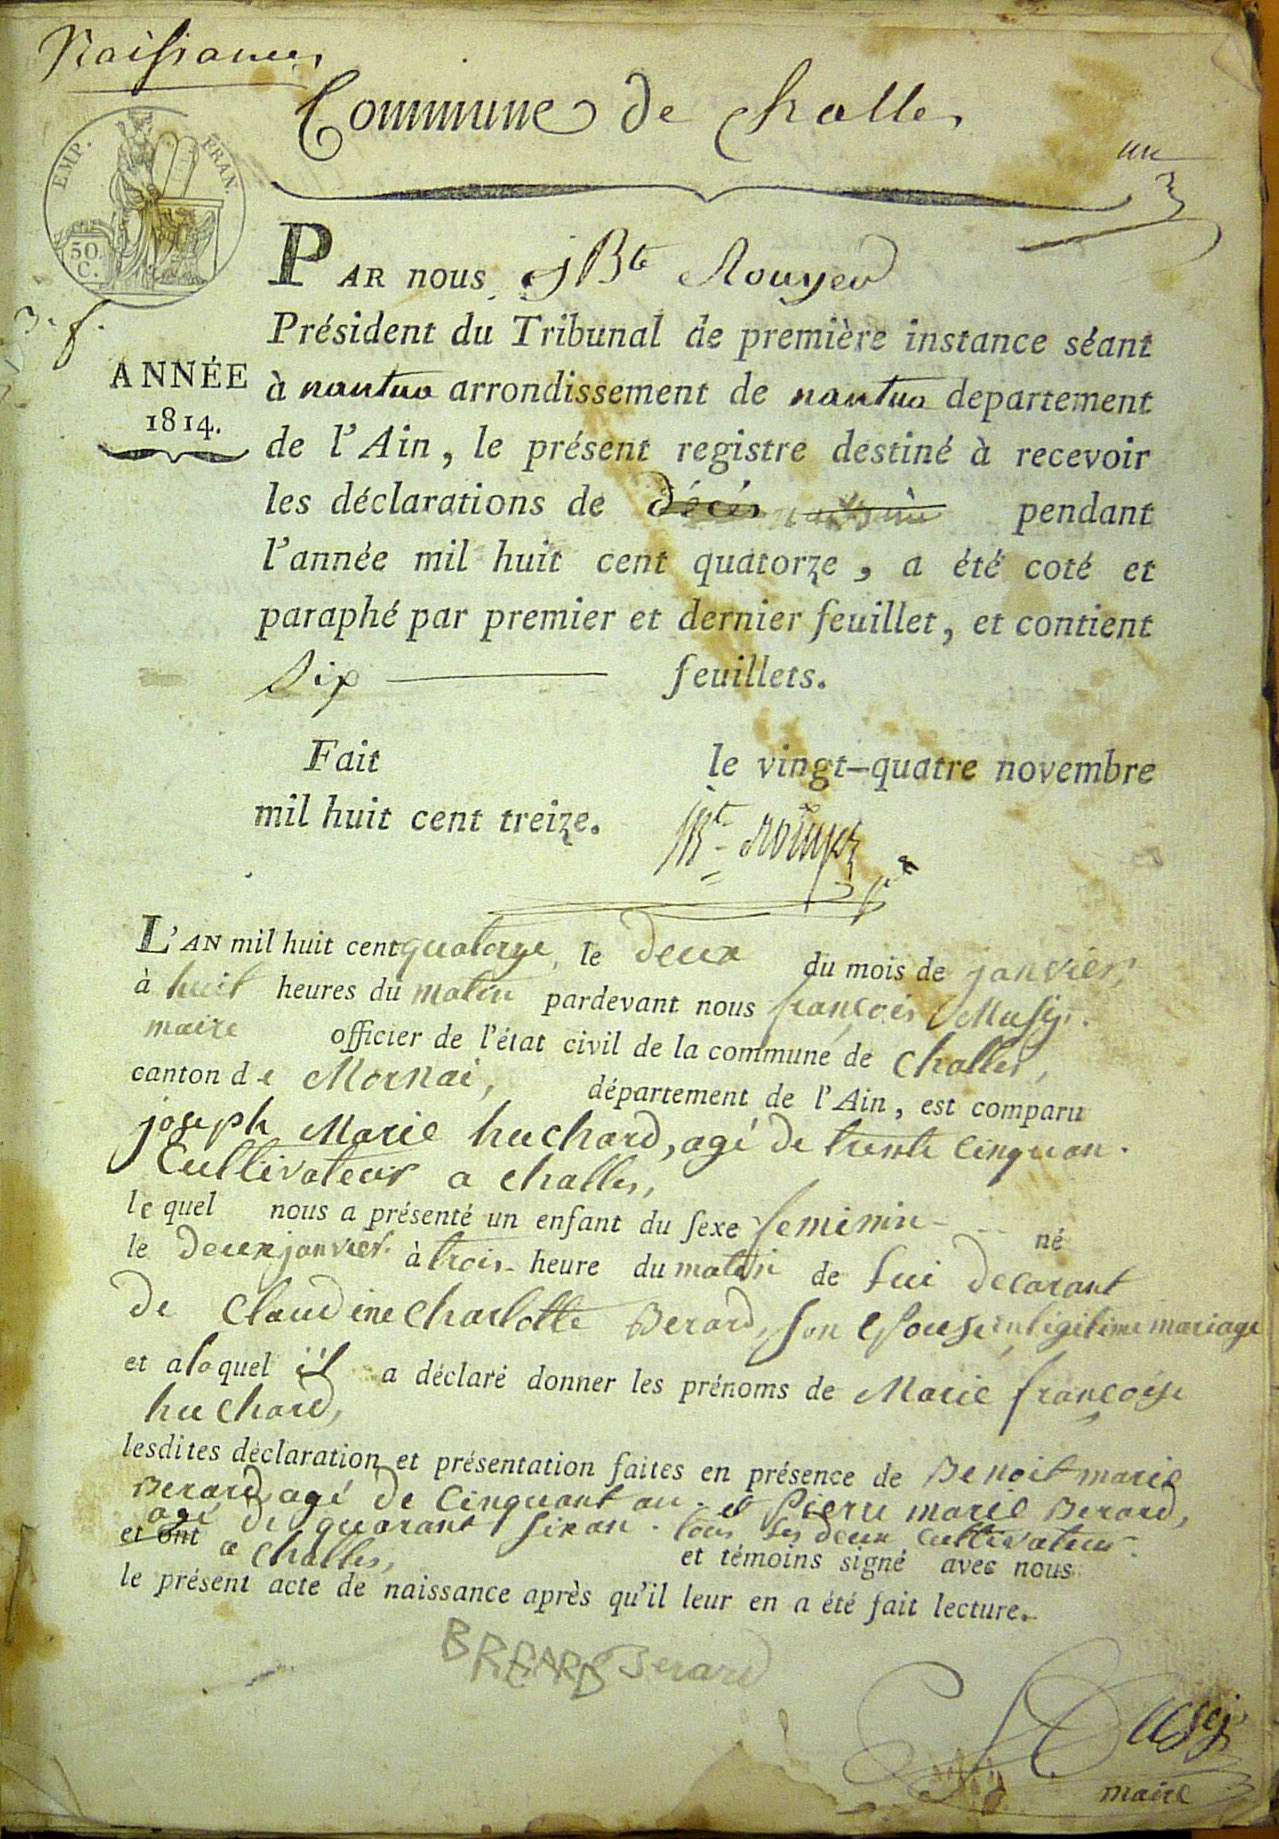 Naissances
Commune de Challes
un
EMP. FRAN.
50
C.
PAR nous jBte Rouyer
Président du Tribunal de première instance séant
ANNÉE
1814.
à nantua arrondissement de nantua departement
de l'Ain, le présent registre destiné à recevoir
les déclarations de décés pendant
l'année mil huit cent quatorze, a été coté et
paraphé par premier et dernier feuillet, et contient
Six feuillets.
Fait le vingt-quatre novembre
mil huit cent treize.
jBt Rouyer
L'AN mil huit cent quatorze, le deux du mois de janvier,
à huit heures du matin pardevant nous françois Massy.
maire officier de l'état civil de la commune de Challes,
canton de Mornai, département de l'Ain, est comparu
joseph Marie huchard, agé de trente cinq an.
Cultivateur a challes,
lequel nous a présenté un enfant du sexe feminin né
le deux janvier. à trois heure du matin de lui decarant
de Claudine Charlotte Berard, son Epouse en legitime mariage
et alaquel il a déclaré donner les prénoms de Marie françoise
huchard,
lesdites déclaration et présentation faites en présence de Benoit marie
Berard, agé de Cinquant an. et pierre marie Berard,
agé de quarant sixan. tous les deux cultivateur
et ont a Challes, et témoins signé avec nous
le présent acte de naissance après qu'il leur en a été fait lecture.
BREARD Berard
maire